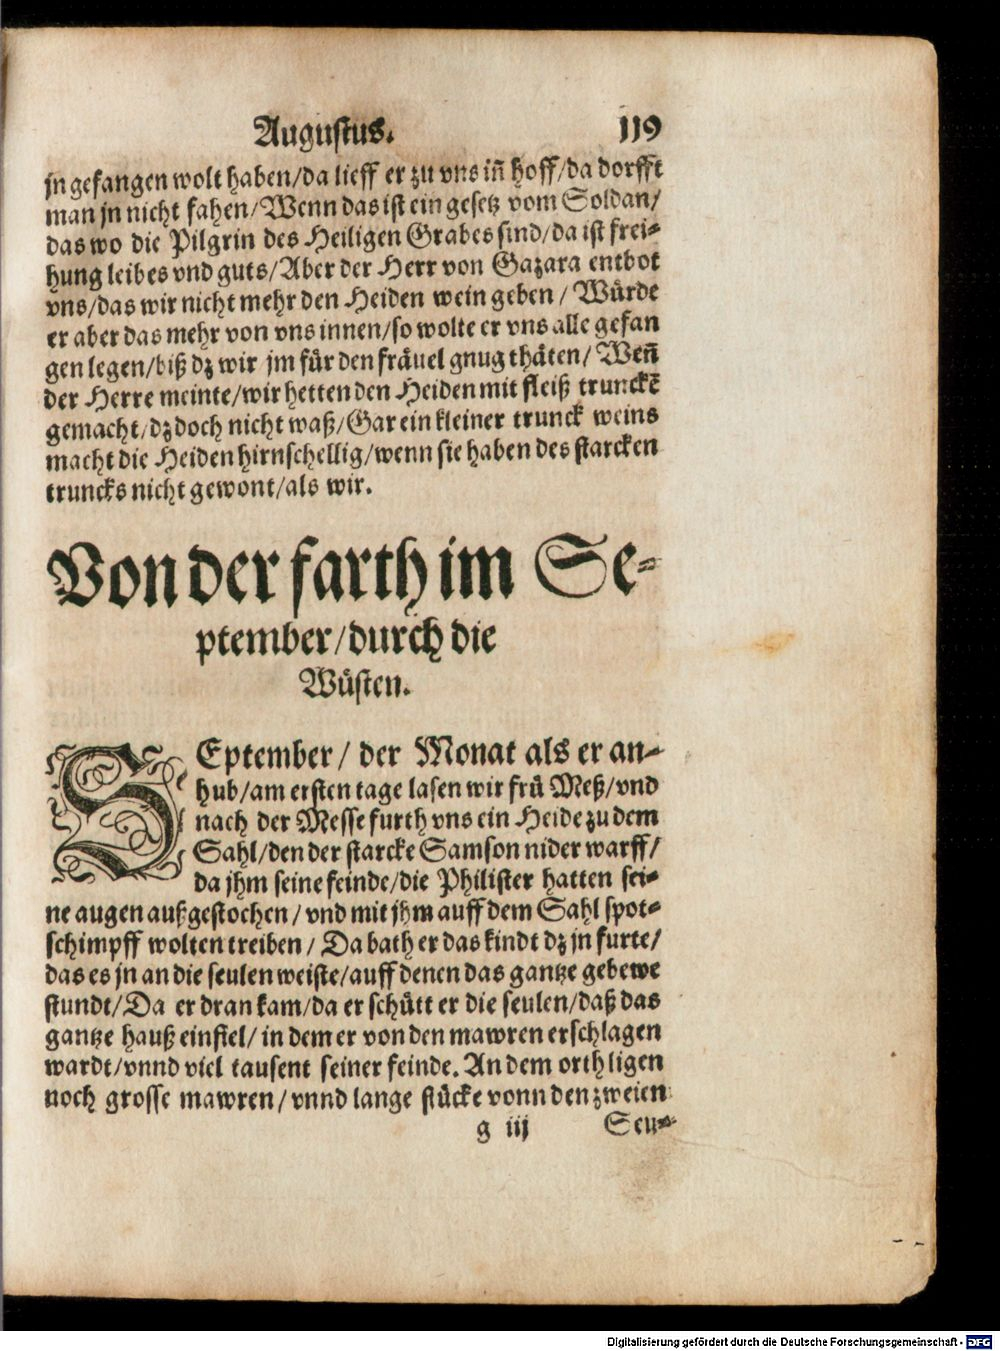 Augustus. 119
jn gefangen wolt haben/da lieff er zu vns iñ hoff/da dorfft
man jn nicht fahen/Wenn das ist ein gesetz vom Soldan/
das wo die Pilgrin des Heiligen Grabes sind/da ist frei-
hung leibes vnd guts/Aber der Herr von Gazara entbot
vns/das wir nicht mehr den Heiden wein geben / Würde
er aber das mehr von vns innen/so wolte er vns alle gefan
gen legen/biß dz wir jm für den fräuel gnug thäten/ Weñ
der Herre meinte/wir hetten den Heiden mit fleiß trunckē
gemacht/dz doch nicht waß/Gar ein kleiner trunck weins
macht die Heiden hirnschellig/wenn sie haben des starcken
truncks nicht gewont/als wir.
Von der farth im Se-
ptember/durch die
Wüsten.
SEptember / der Monat als er an-
hub/am ersten tage lasen wir frü Meß/vnd
nach der Messe furth vns ein Heide zu dem
Sahl/den der starcke Samson nider warff/
da jhm seine feinde/die Philister hatten sei-
ne augen außgestochen / vnd mit jhm auff dem Sahl spot-
schimpff wolten treiben / Da bath er das kindt dz jn furte/
das es jn an die seulen weiste/auff denen das gantze gebewe
stundt/Da er dran kam/da er schütt er die seulen/daß das
gantze hauß einfiel/ in dem er von den mawren erschlagen
wardt/vnnd viel tausent seiner feinde. An dem orth ligen
noch grosse mawren/vnnd lange stücke vonn den zweien
g iij Seu-
Digitalisierung gefördert durch die Deutsche Forschungsgemeinschaft - DFG